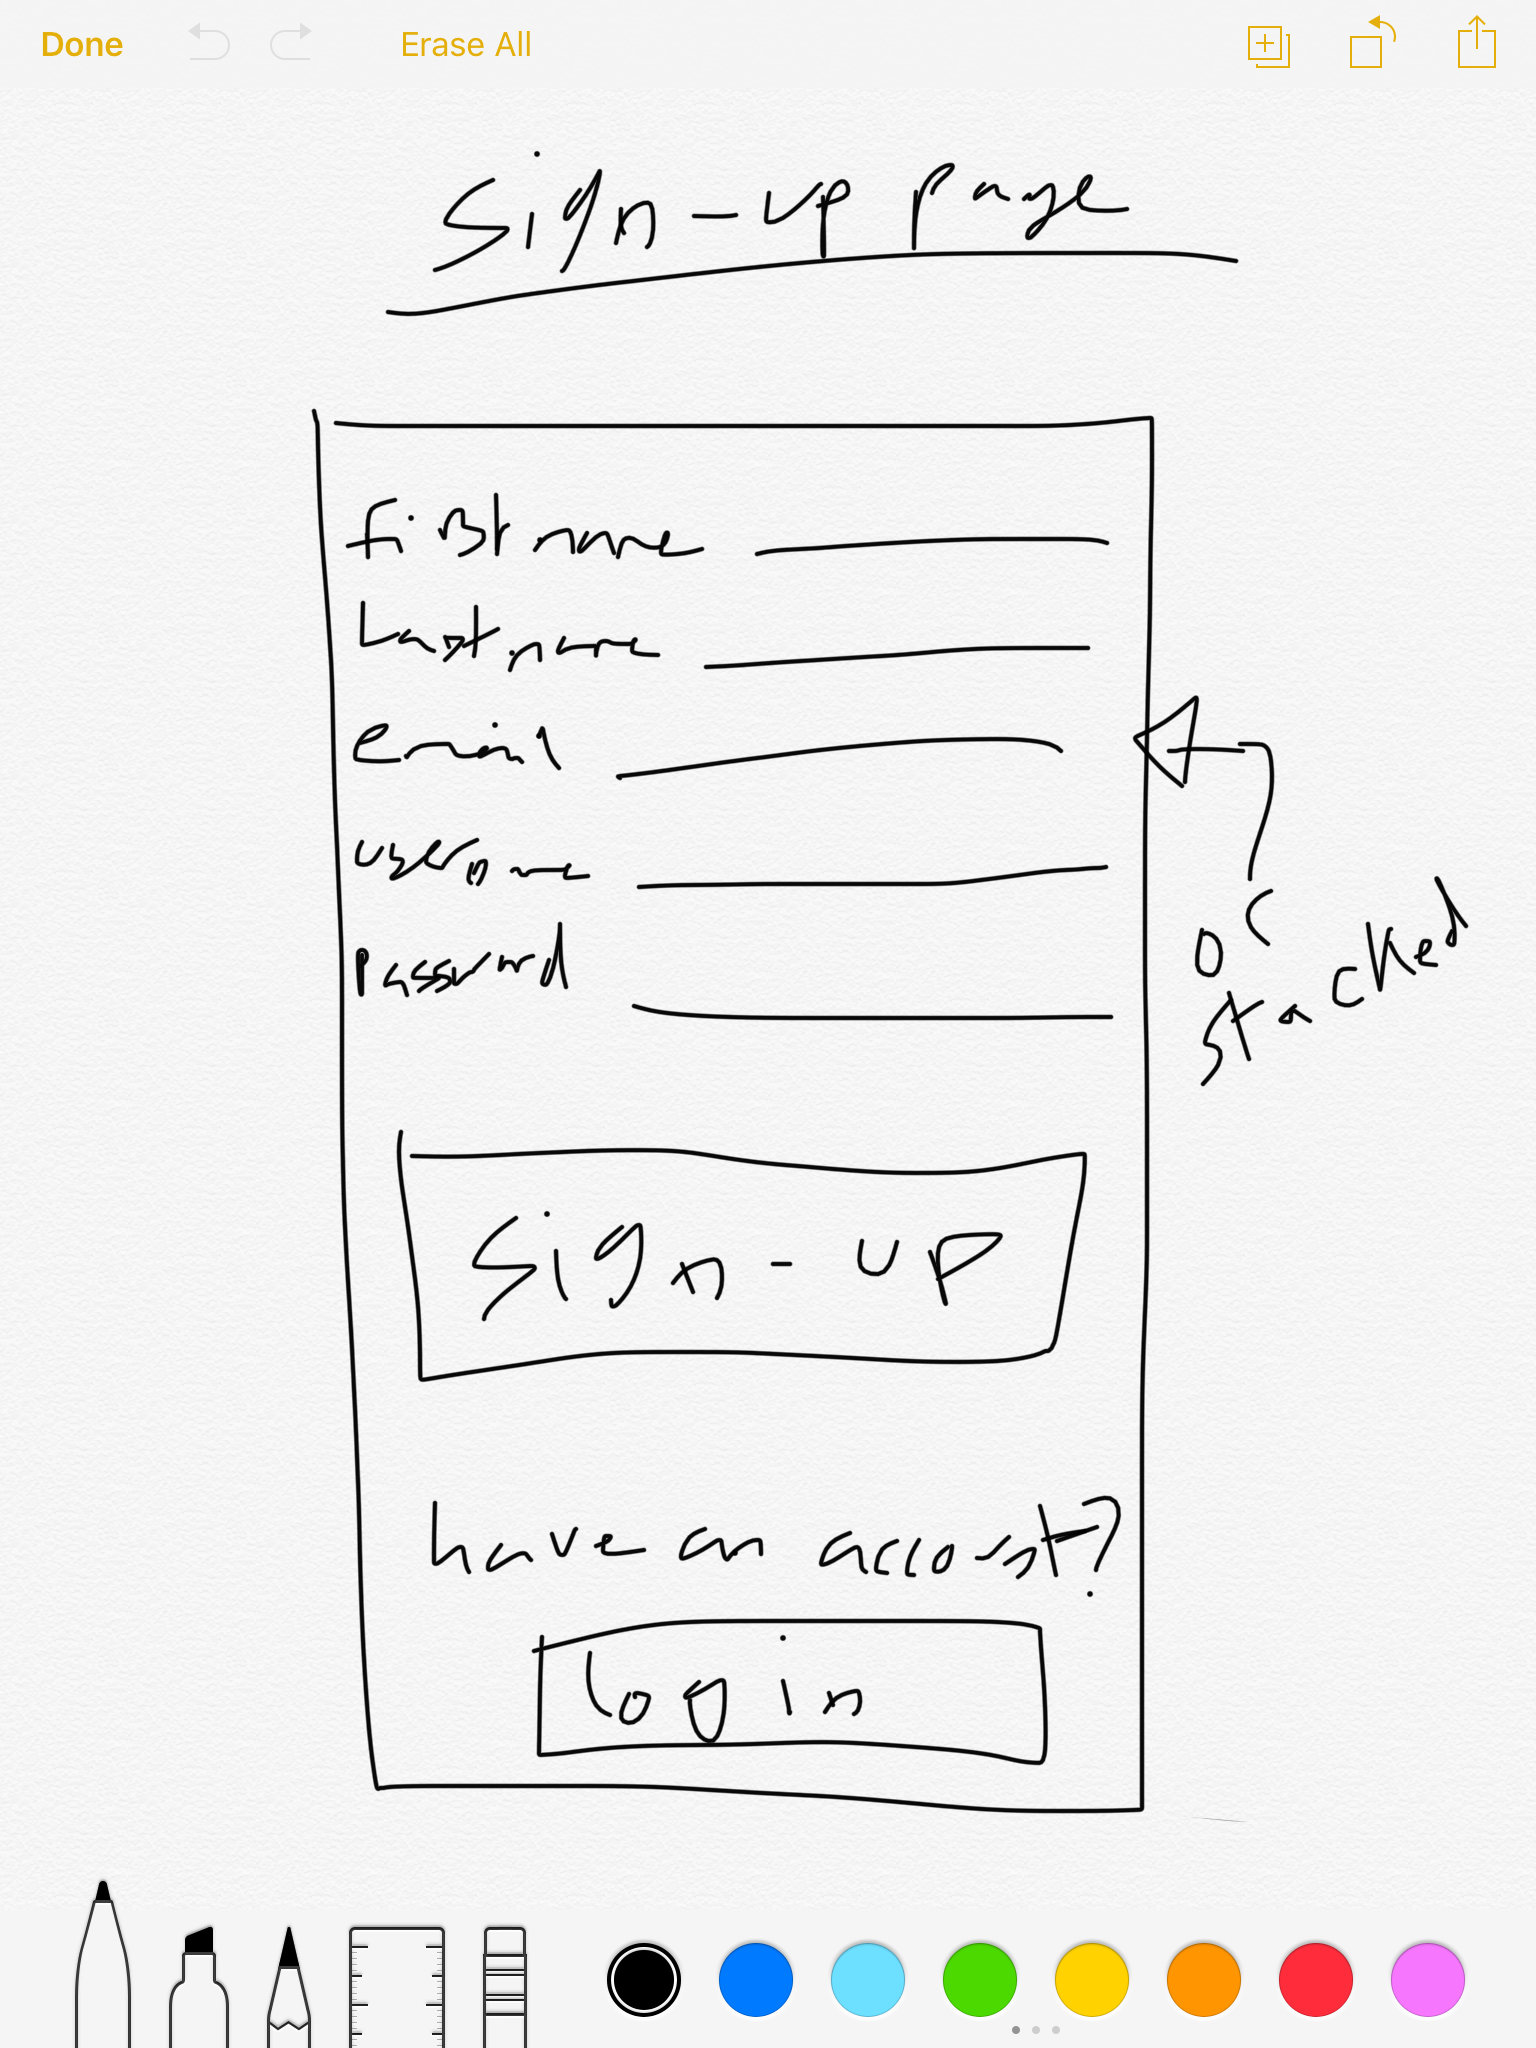 Done Erase All
Sign-up page
first name
Last name
email
username
password
or
stacked
Sign-up
have an account?
login